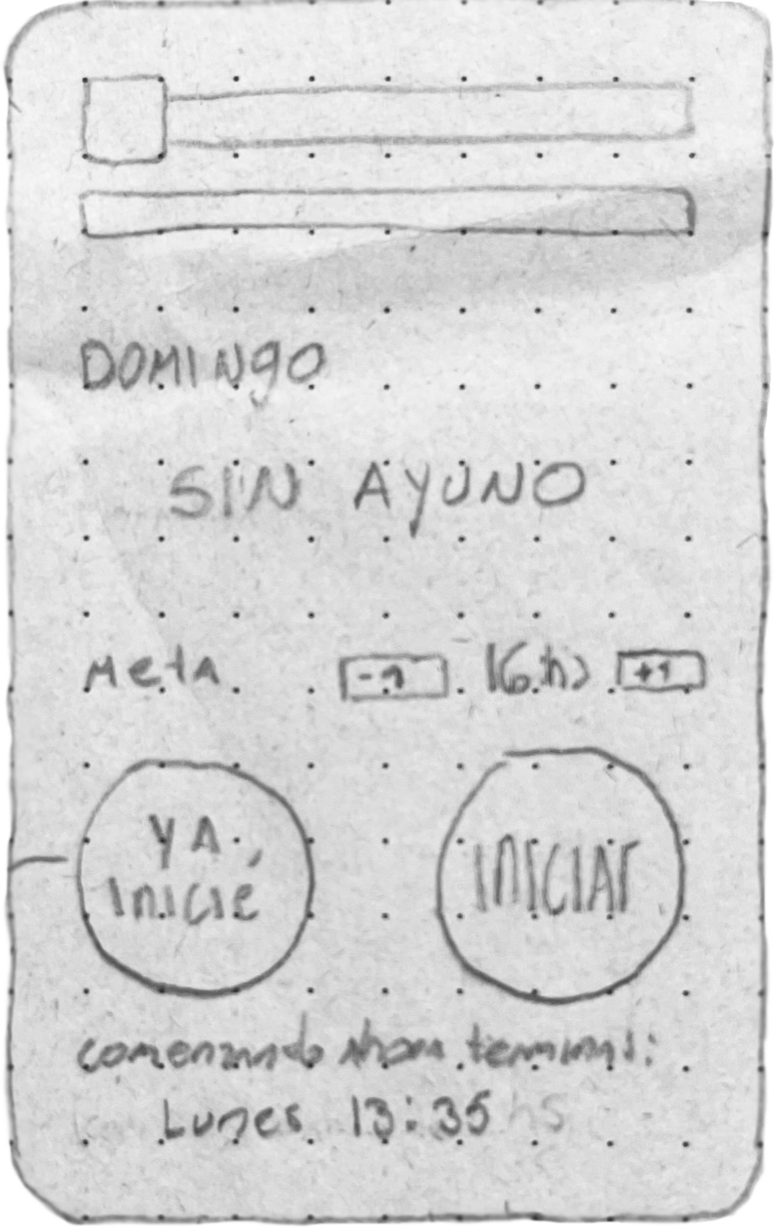 DOMINGO
SIN AYUNO
Meta -1 16 hs +1
YA
inicié
INICIAR
comenzando ahora terminas:
Lunes 13:35 hs